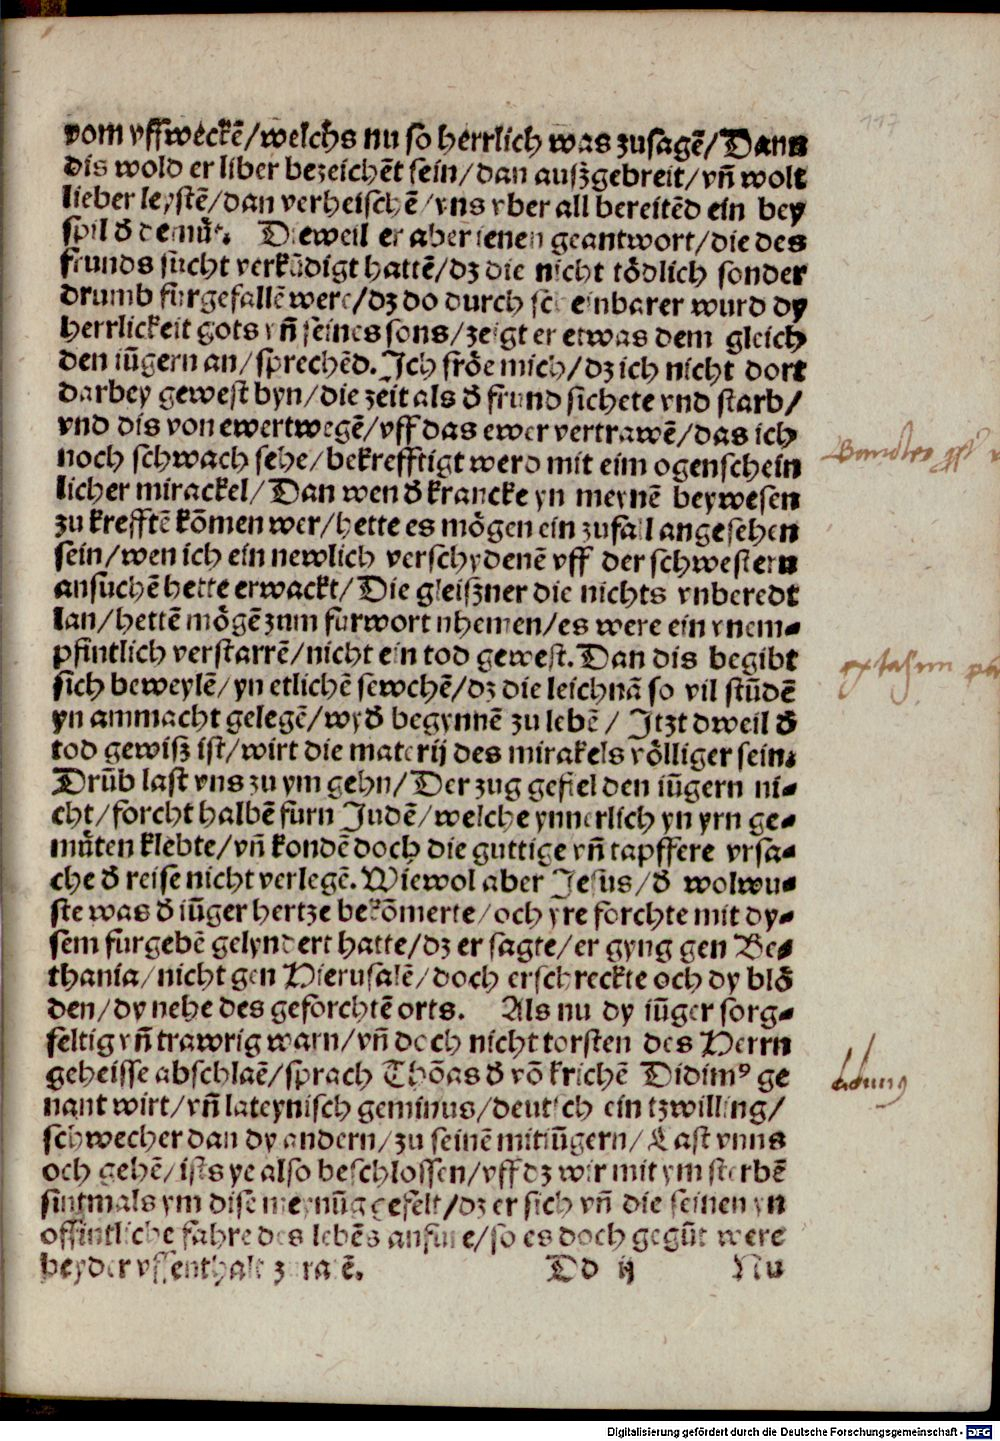 117
vom vffweckē/welchs nu so herrlich was zusagē/Dann
dis wold er liber bezeichēt sein/dan außgebreit/vñ wolt
lieber leystē/dan verheischē/vns vber all bereitēd ein bey
spil d̄ demůt. Dieweil er aber ienen geantwort/die des
frunds sucht verkūdigt hattē/dz die nicht tödlich sonder
drumb furgefallē were/dz do durch scheinbarer wurd dy
herrlickeit gots vñ seines sons/zeigt er etwas dem gleich
den iūgern an/sprechēd. Ich fröe mich/dz ich nicht dort
darbey gewest byn/die zeit als d̄ frund sichete vnd starb/
vnd dis von ewertwegē/vff das ewer vertrawē/das ich
noch schwach sehe/bekrefftigt werd mit eim ogenschein
licher mirackel/Dan wen d̄ krancke yn meynē beywesen
zu krefftē kōmen wer/hette es mögen ein zufall angesehen
sein/wen ich ein newlich verschydenē vff der schwestern
ansuchē hette erwackt/Die gleißner die nichts vnberedt
lan/hettē mögē zum furwort nhemen/es were ein vnem-
pfintlich verstarrē/nicht ein tod gewest. Dan dis begibt
sich beweylē/yn etlichē sewchē/dz die leichnā so vil stūdē
yn ammacht gelegē/wyd̄ begynnē zu lebē/ Itzt dweil d̄
tod gewiß ist/wirt die materij des mirakels völliger sein.
Drūb last vns zu ym gehn/Der zug gefiel den iūgern ni-
cht/forcht halbē furn Judē/welche ynnerlich yn yrn ge-
můten klebte/vñ kondē doch die guttige vñ tapffere vrsa-
che d̄ reise nicht verlegē. Wiewol aber Jesus/d̄ wolwu-
ste was d̄ iūger hertze bekōmerte/och yre forchte mit dy-
sem furgebē gelyndert hatte/dz er sagte/er gyng gen Be-
thania/nicht gen Hierusalē/doch erschreckte och dy blö
den/dy nehe des geforchtē orts. Als nu dy iūger sorg-
feltig vñ trawrig warn/vñ doch nicht torsten des Herrn
geheisse abschlaē/sprach Thōas d̄ vō krichē Didimꝰ ge
nant wirt/vñ lateynisch geminus/deutsch ein tzwilling/
schwecher dan dy andern/zu seinē mitiūgern/Last vnns
och gehē/ists ye also beschlossen/vff dz wir mit ym sterbē
sintmals ym dise meynūg gefelt/dz er sich vñ die seinen yn
offintliche fahre des lebēs anfure/so es doch gegūt were
beyder vffenthalt
Dd ij
Nu
Digitalisierung gefördert durch die Deutsche Forschungsgemeinschaft - DFG